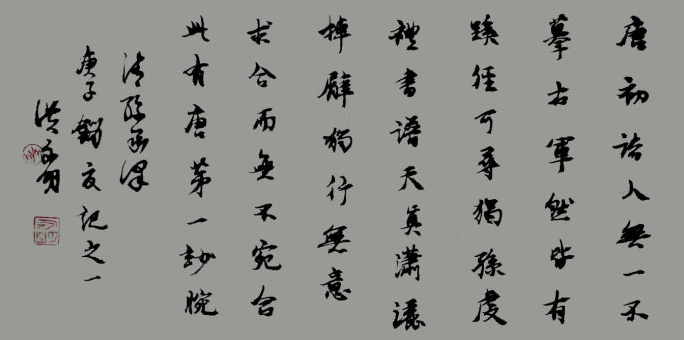 唐初諸人無一不
摹右軍然皆有
蹊徑可尋獨孫虔
禮書譜天真瀟灑
掉臂獨行無意
求合而無不宛合
此有唐第一妙腕
清孫承澤
庚子銷夏記之一
洪